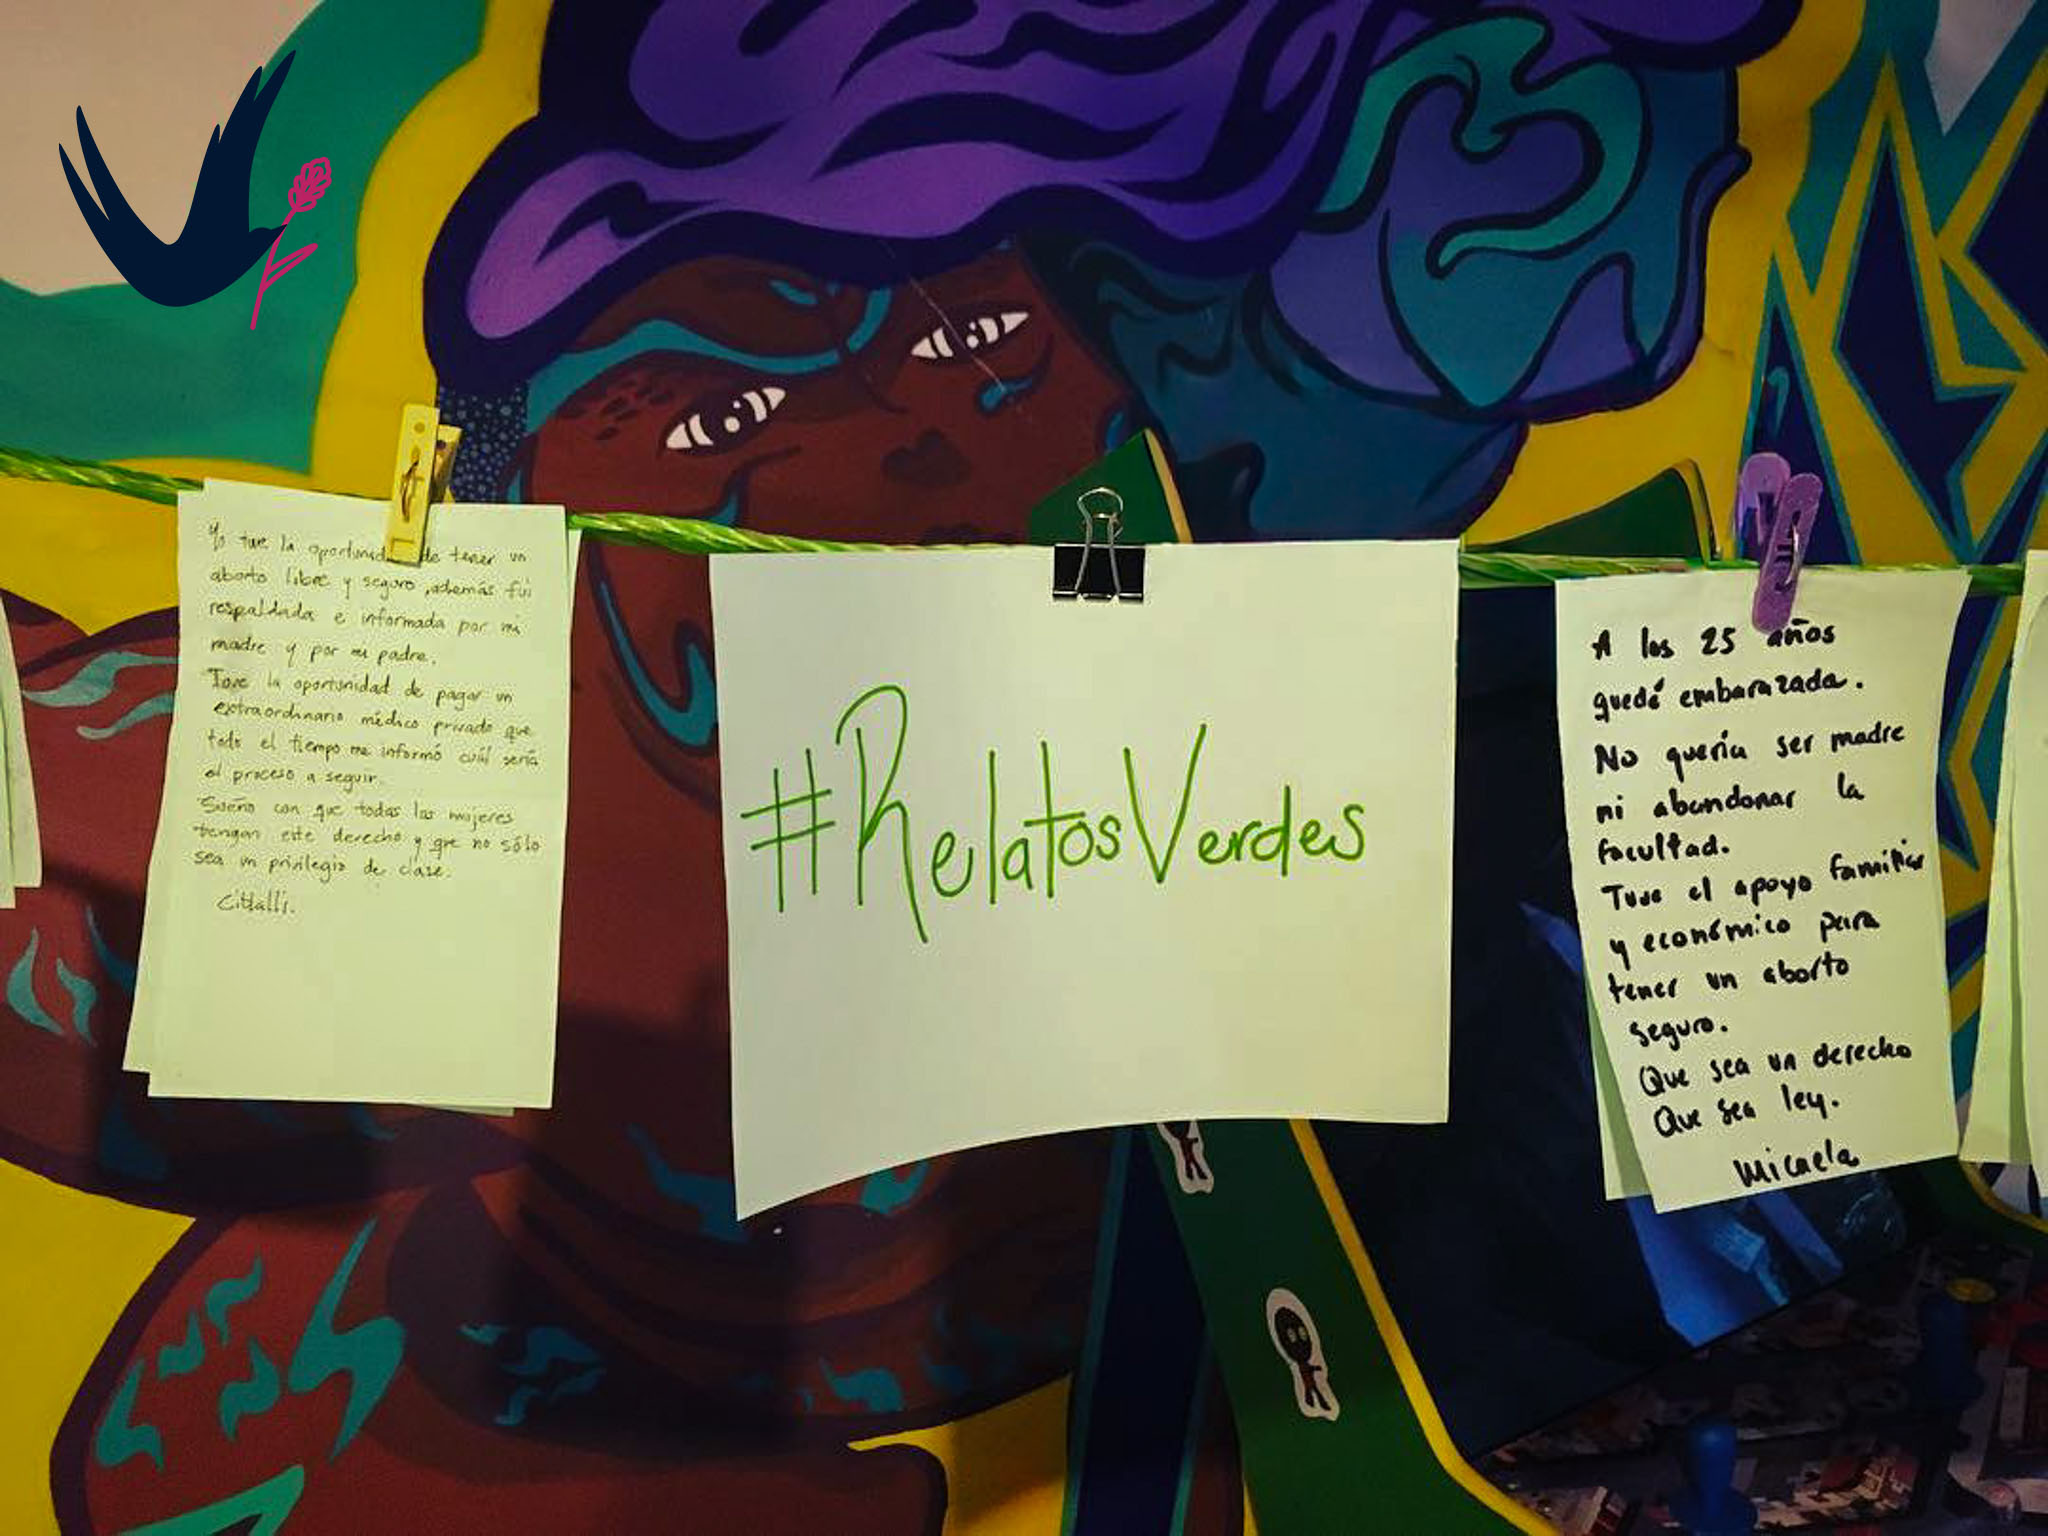 Yo tuve la oportunidad de tener un
aborto libre y seguro, además fui
respaldada e informada por mi
madre y por mi padre.
Tuve la oportunidad de pagar un
extraordinario médico privado que
todo el tiempo me informó cuál sería
el proceso a seguir.
Sueño con que todas las mujeres
tengan este derecho y que no sólo
sea un privilegio de clase.
Citlalli.
#RelatosVerdes
A los 25 años
quedé embarazada.
No quería ser madre
ni abandonar la
facultad.
Tuve el apoyo familiar
y económico para
tener un aborto
seguro.
Que sea un derecho
Que sea ley.
Micaela